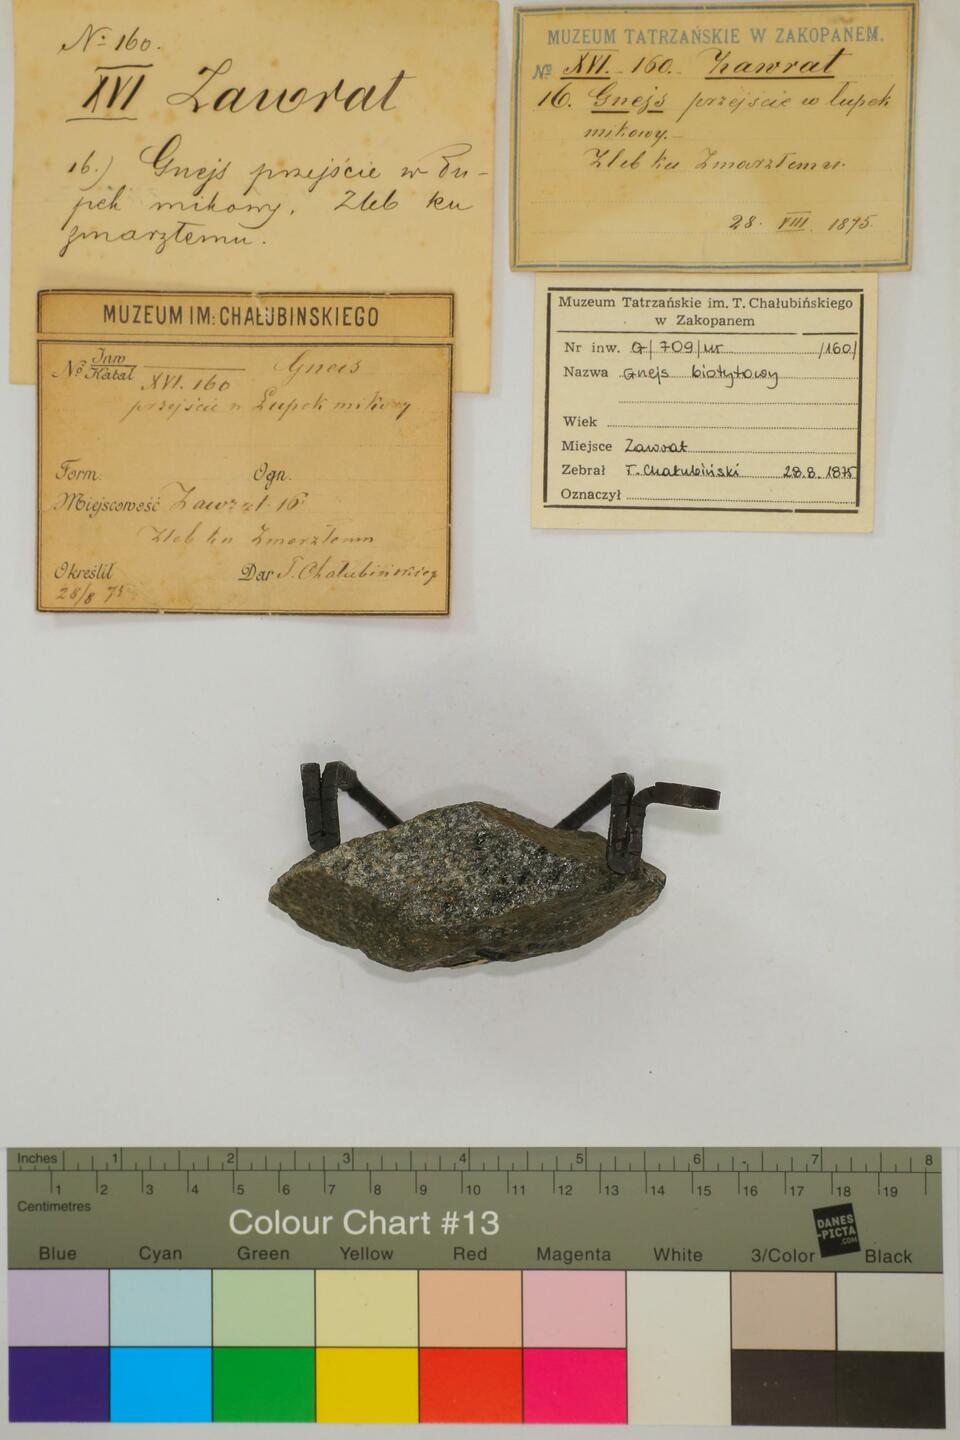 No 160.
XVI Zawrat
16.) Gnejs przejście w łu-
pek mikowy. Żleb ku
zmarzłemu.
MUZEUM TATRZAŃSKIE W ZAKOPANEM.
No XVI. 160. Zawrat
16. Gnejs przejście w łupek
mikowy.
Żleb ku Zmarzłemu.
28. VIII. 1875.
MUZEUM IM: CHAŁUBINSKIEGO
No Inw Gneis
Katal XVI. 160
przejście w Łupek mikowy
Form. Ogn.
Miejscowość Zawrat 16
Żleb ku Zmarzłemu
Określił Dar T. Chałubińskiego
28/8 75
Muzeum Tatrzańskie im. T. Chałubińskiego
w Zakopanem
Nr inw. G/709/ /160/
Nazwa Gnejs biotytowy
Wiek
Miejsce Zawrat
Zebrał T. Chałubiński 28.8.1875
Oznaczył
Inches 1 2 3 4 5 6 7 8
1 2 3 4 5 6 7 8 9 10 11 12 13 14 15 16 17 18 19
Centimetres
Colour Chart #13
DANES
-PICTA
.COM
Blue Cyan Green Yellow Red Magenta White 3/Color Black